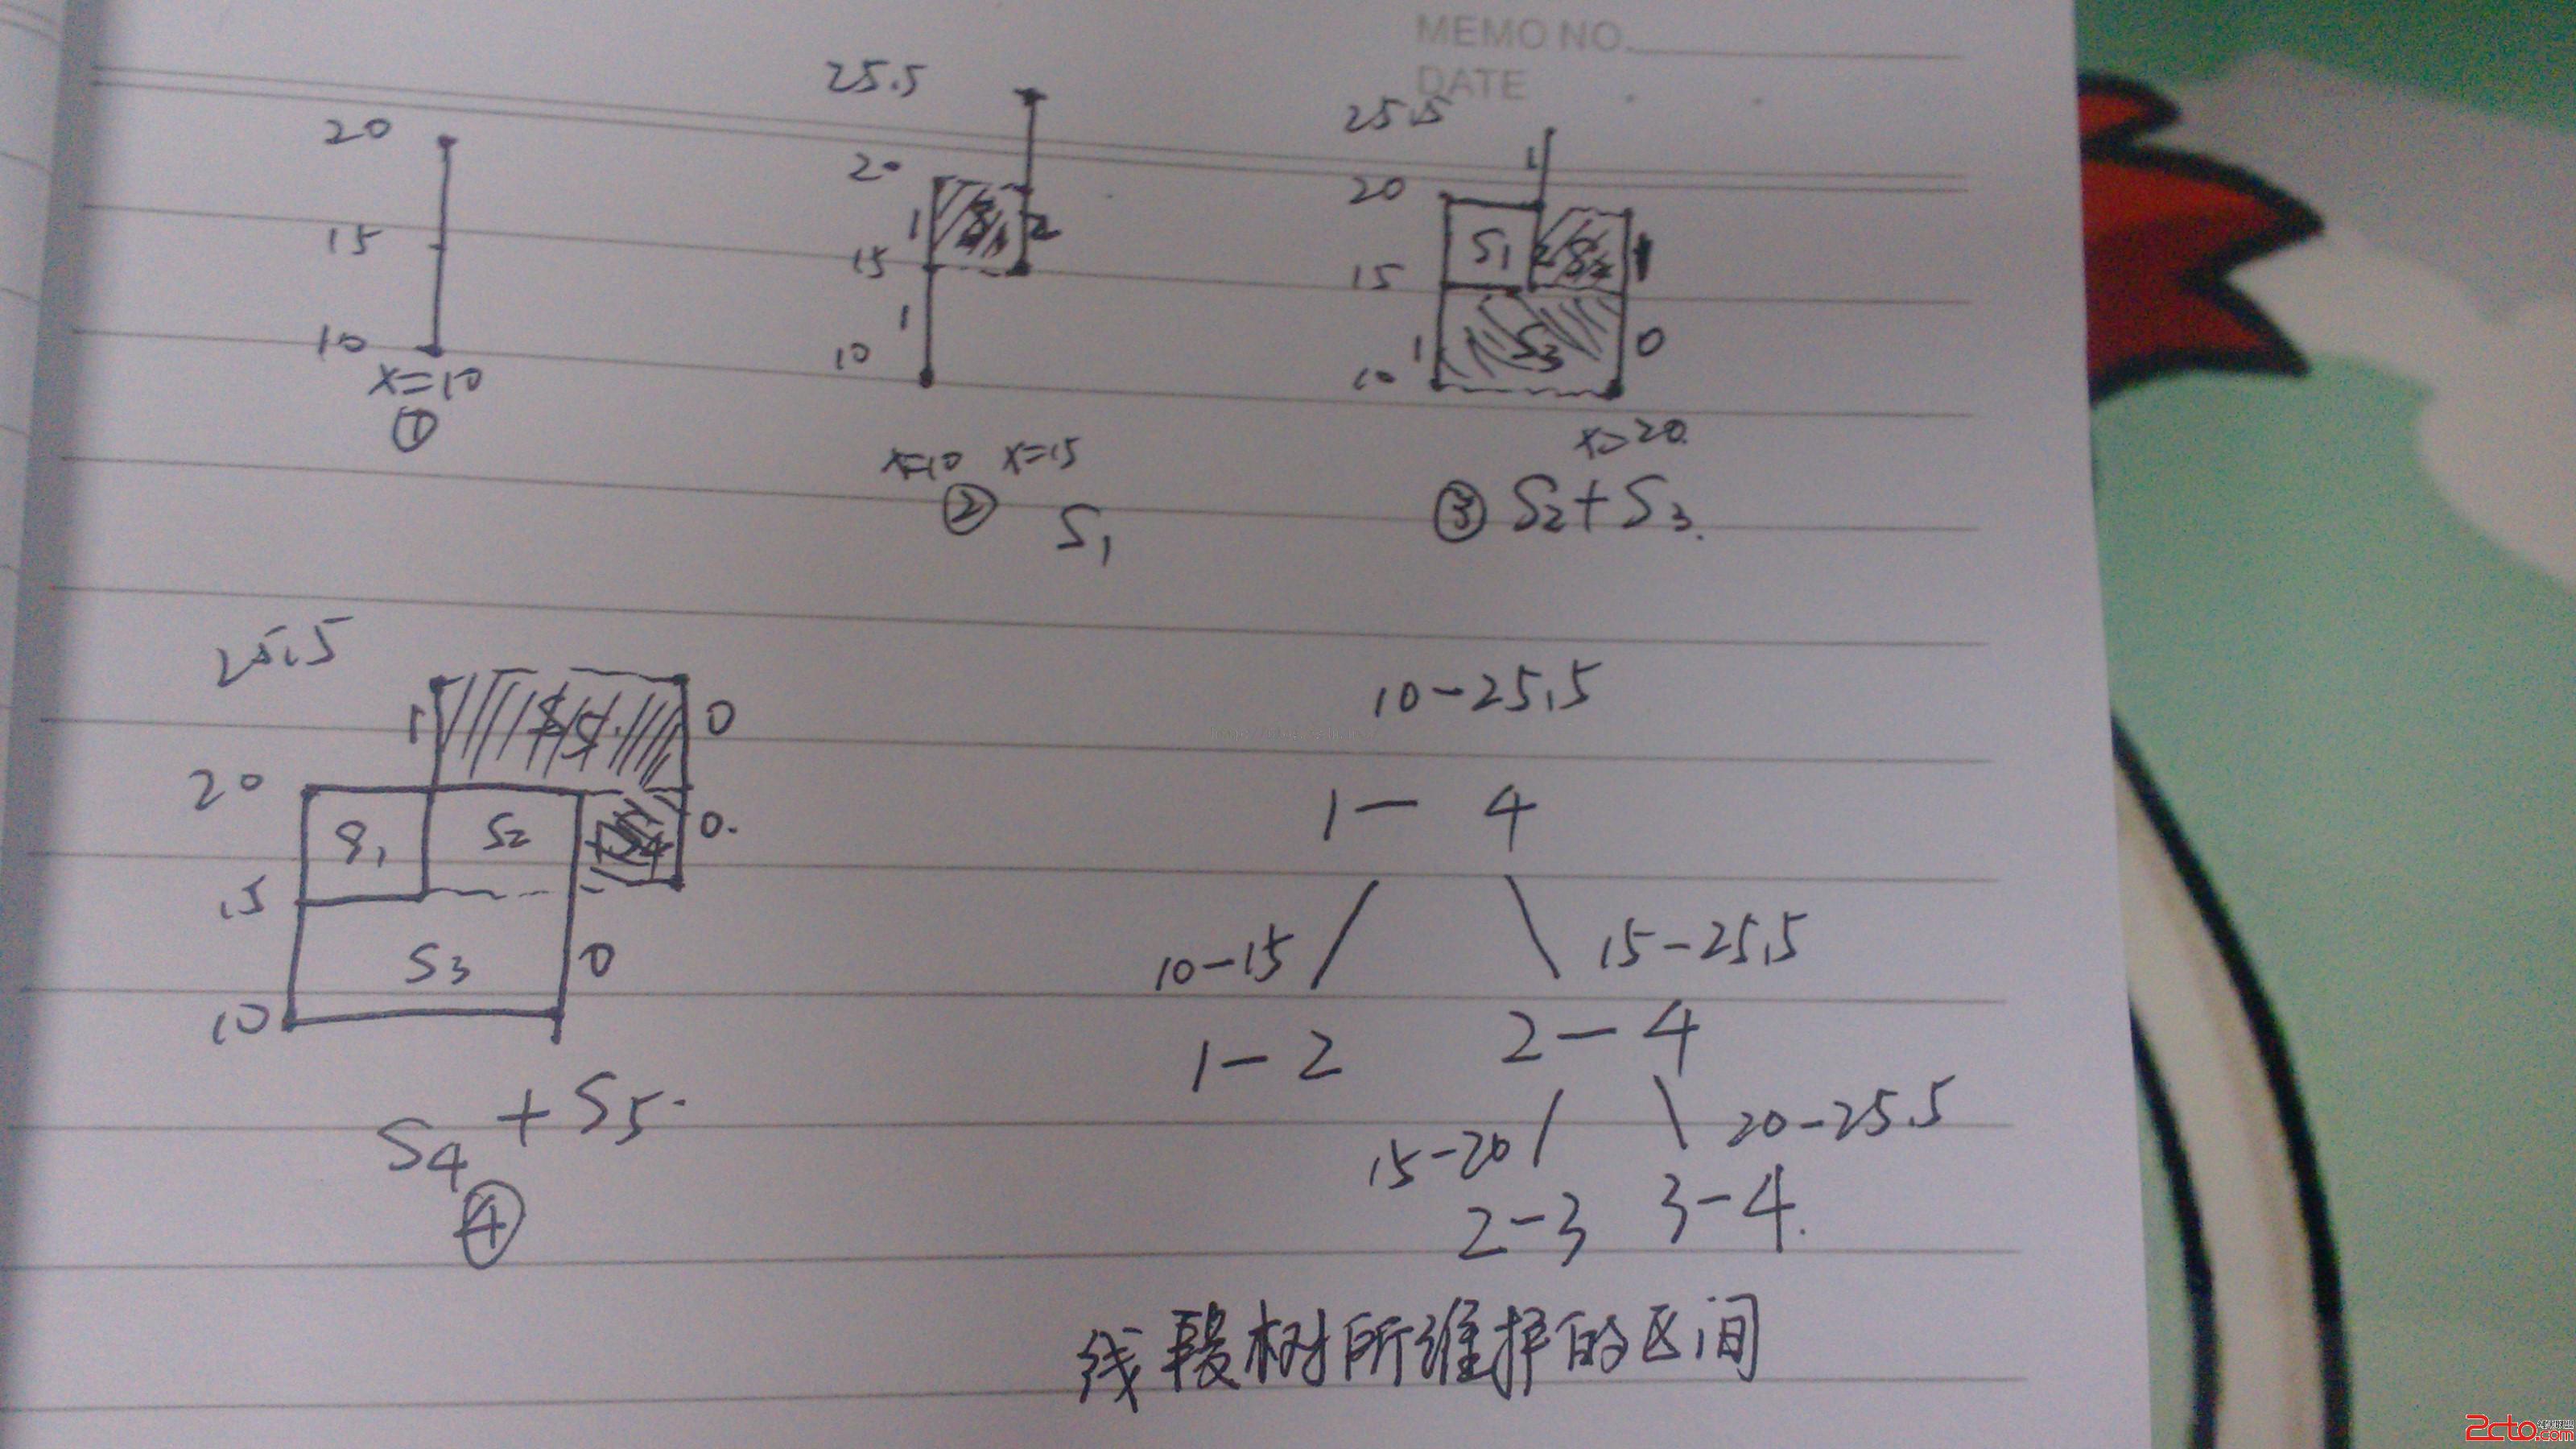 MEMO NO.
DATE
20
15
10
x=10
①
25.5
20
1
S1
2
15
1
10
x=10 x=15
②
S1
25.5
1
20
S1
2
S2
1
15
1
S3
0
10
x=20
③ S2+S3.
25.5
1
S5
0
20
S1
S2
S4
0.
15
S3
0
10
S4+S5.
④
10-25.5
1-4
10-15
15-25.5
1-2
2-4
15-20
20-25.5
2-3
3-4.
线段树所维护的区间
2cto
.com